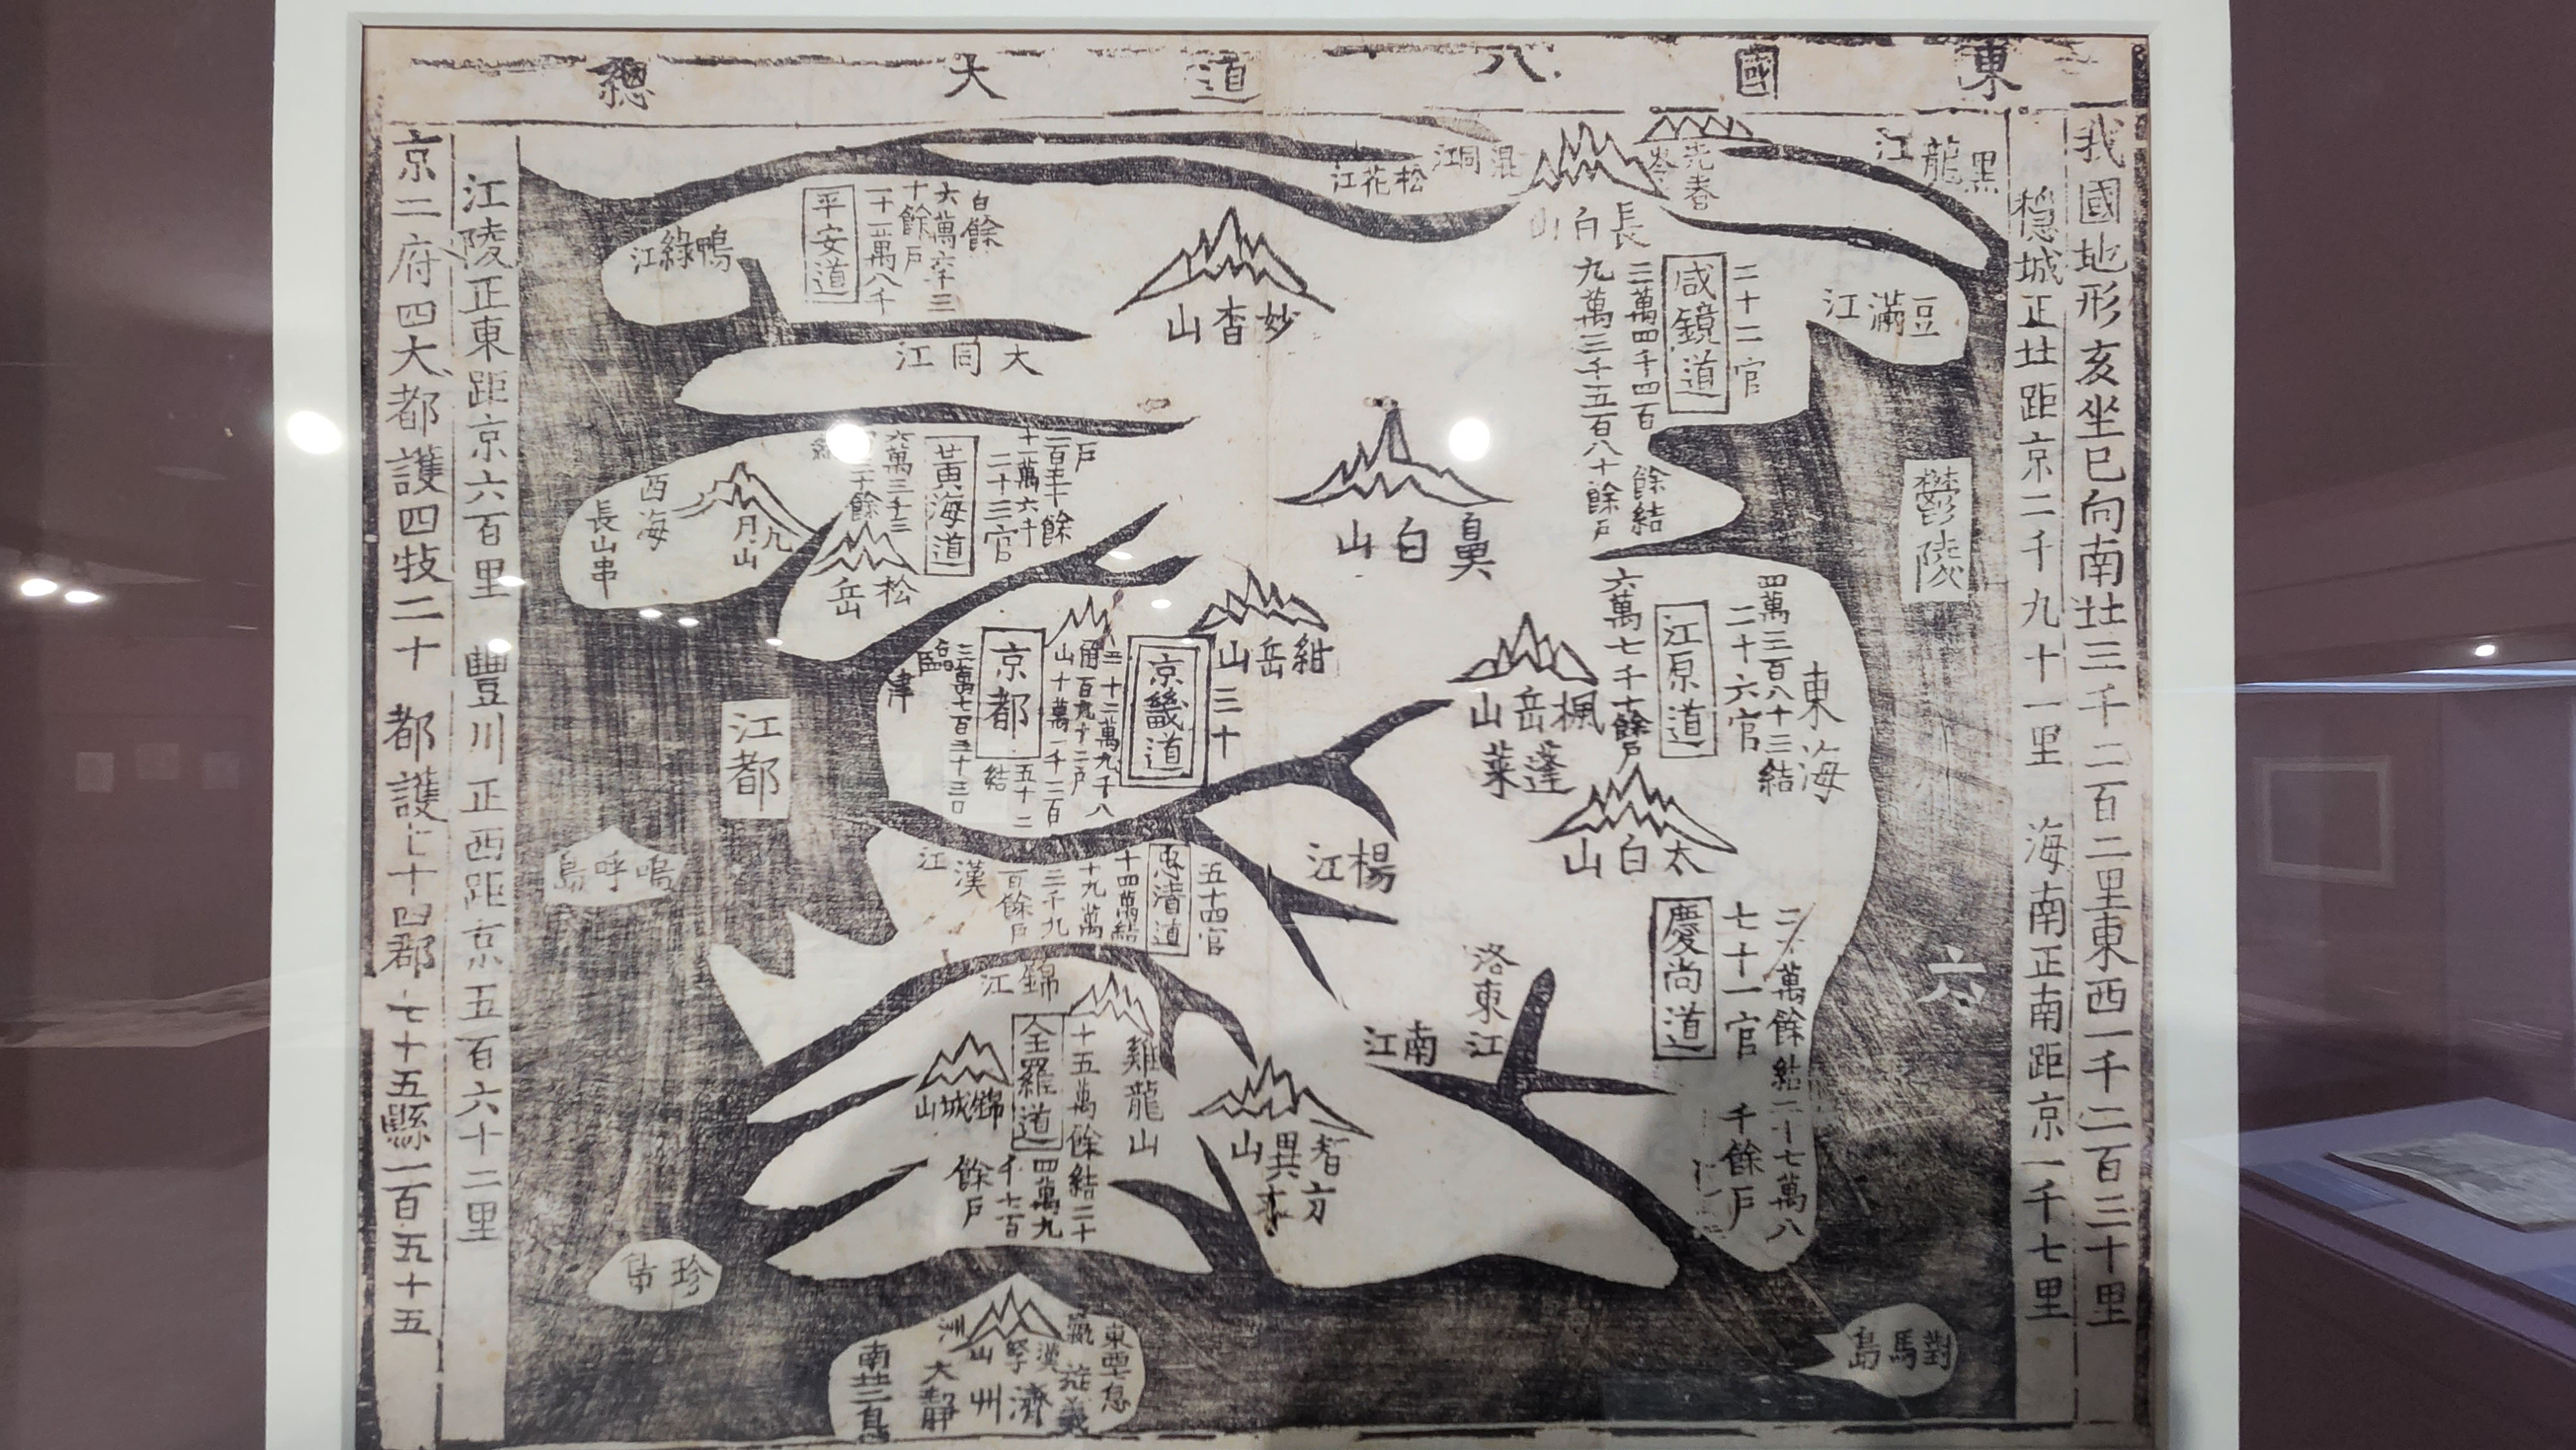 東國八道大總
我國地形亥坐巳向南北三千二百二里東西一千二百三十里
穩城正北距京二千九十一里 海南正南距京一千七里
黑龍江
先春岺
混同江
松花江
長白山
豆滿江
二十二官
咸鏡道
三萬四千四百餘結
九萬三千五百八十餘戶
鬱陵
妙香山
白餘
六萬六千三
十餘戶
平安道
鴨綠江
大同江
鼻白山
戶
二百五十餘
十一萬六千
二十三官
黃海道
六萬三千三
九月山
西海
長山串
松岳
東海
四萬三百八十三結
二十六官
江原道
六萬七千十餘戶
楓岳山
蓬萊
太白山
紺岳山
三十
京畿道
京都
臨津
江都
嗚呼島
楊江
漢江
五十四官
忠清道
十四萬結
十九萬
三千九
百餘戶
七十一官
慶尚道
千餘戶
洛東江
南江
錦江
雞龍山
十五萬餘結二十
全羅道
四萬九
千七百
餘戶
錦城山
智異山
方丈
六
珍島
漢拏山
濟州
大靜
旌義
對馬島
江陵正東距京六百里 豐川正西距京五百六十二里
京二府四大都護四牧二十 都護七十四郡七十五縣一百五十五